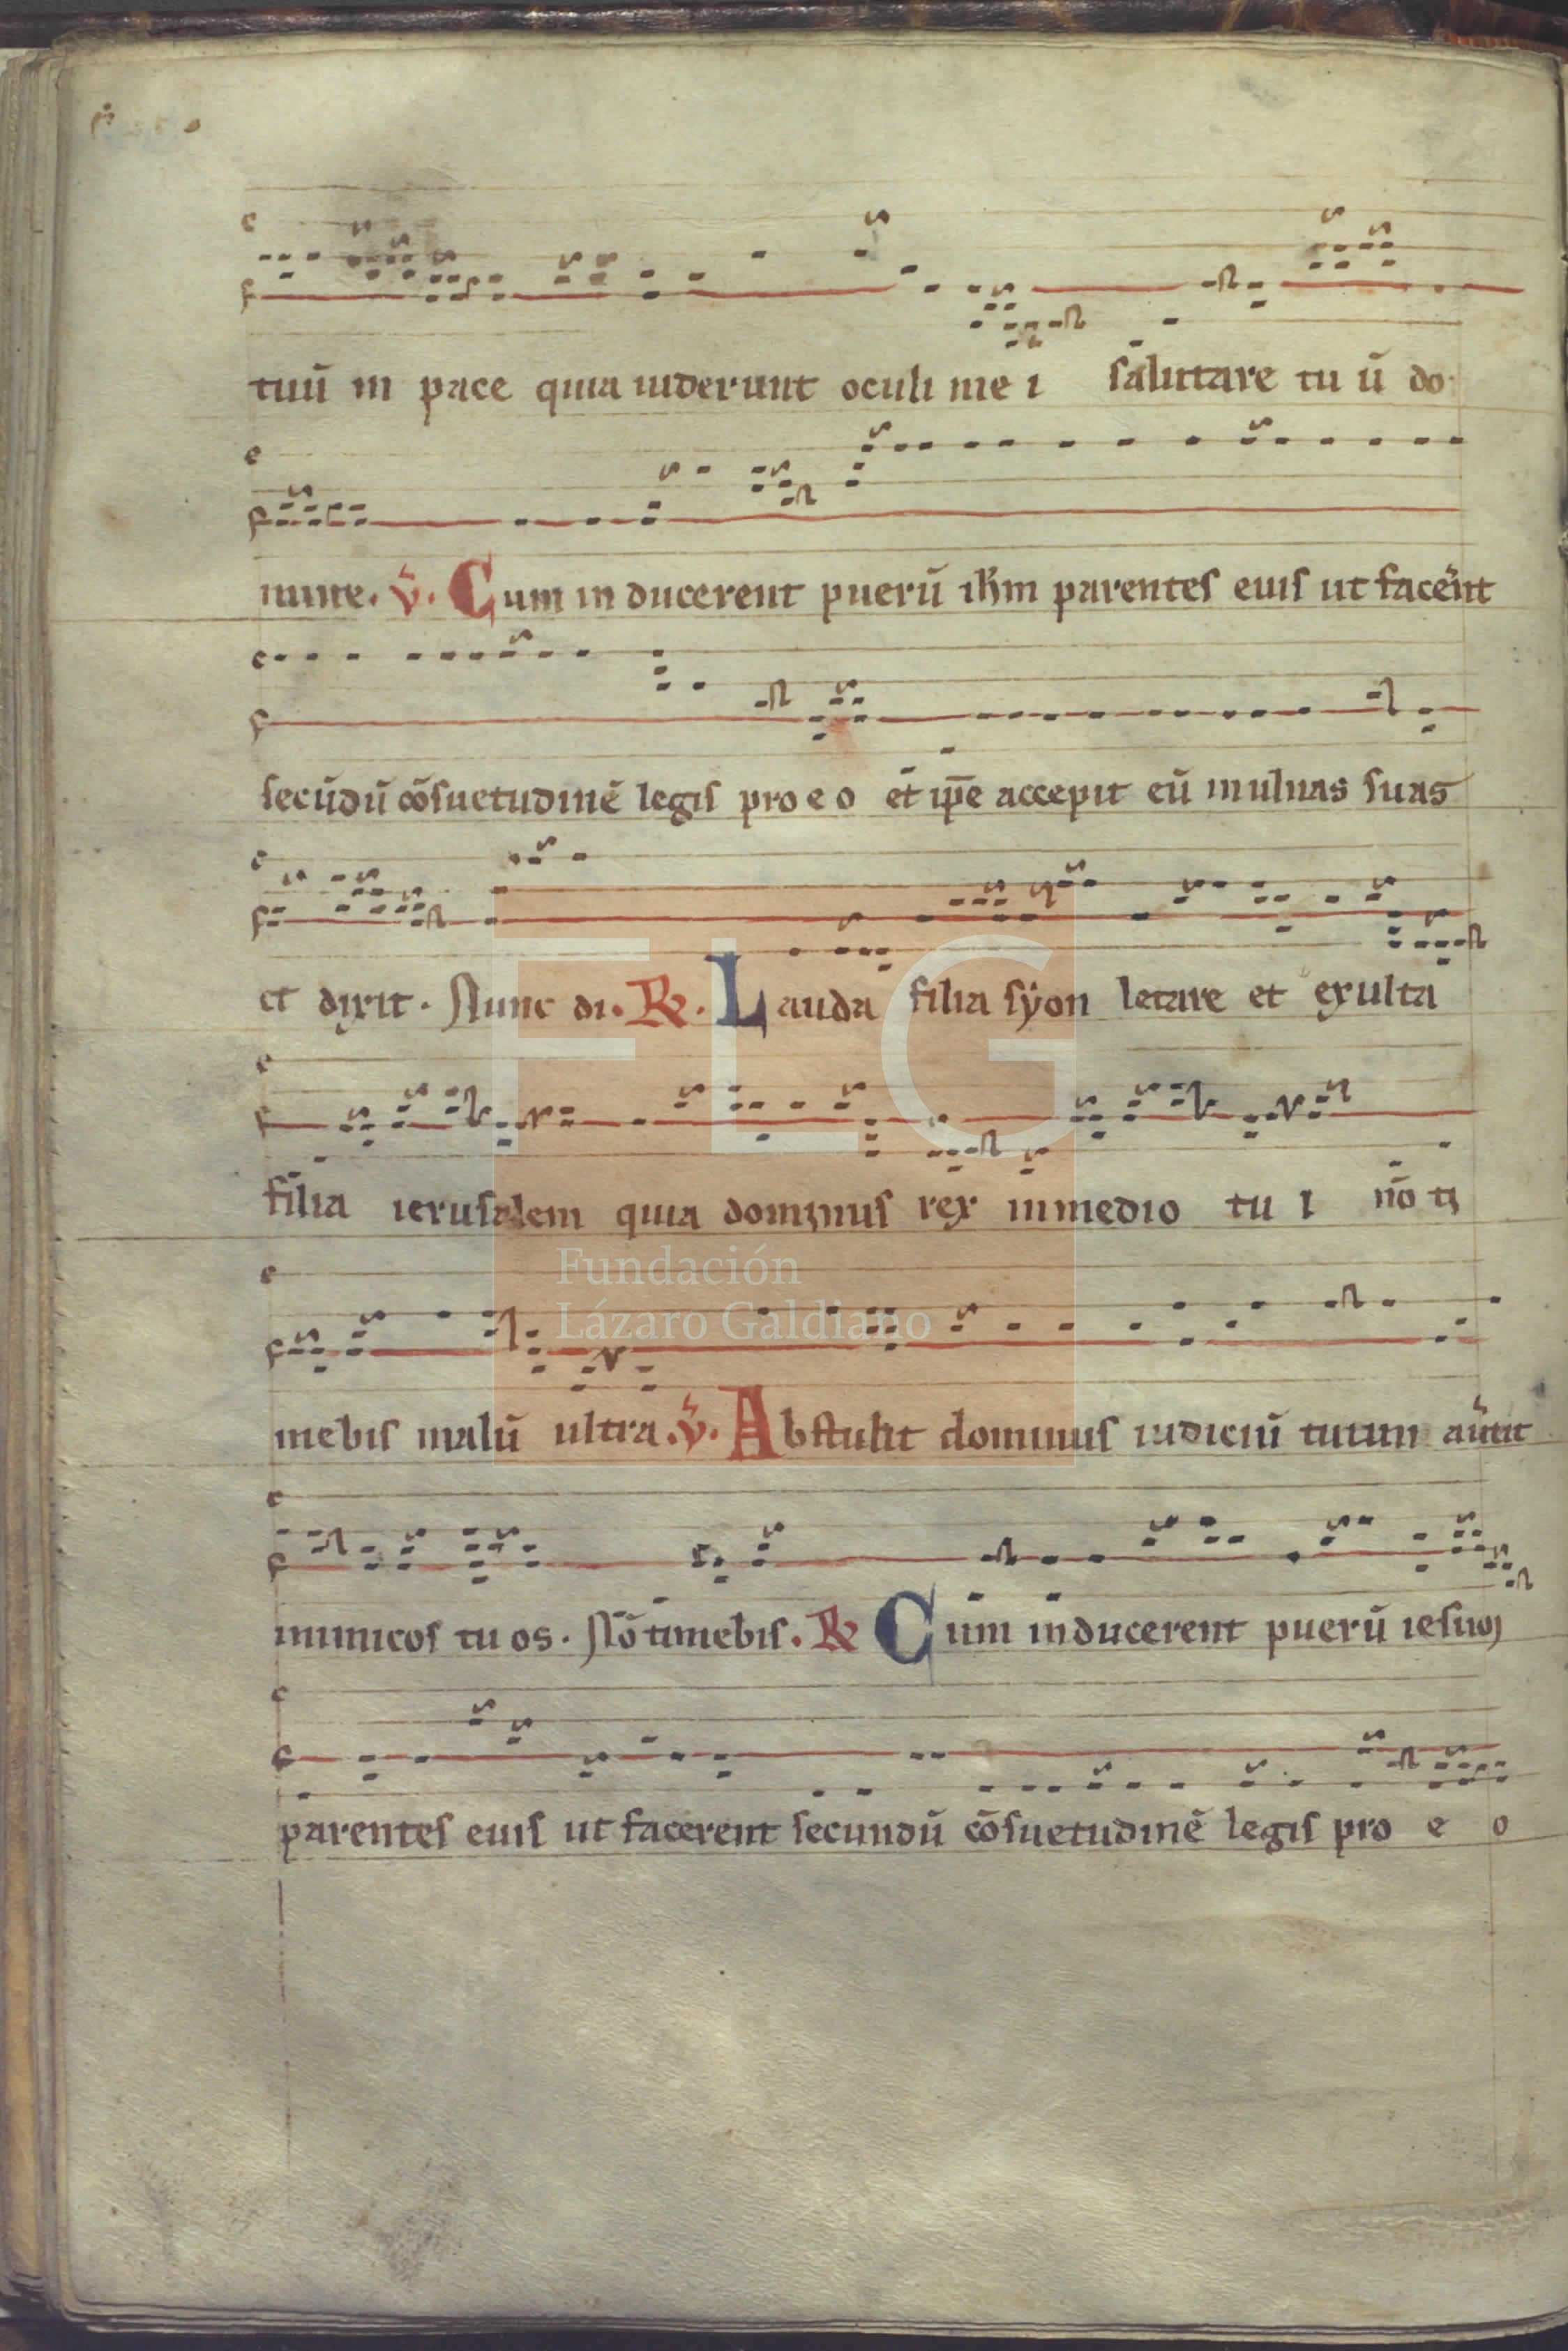 tuū in pace quia uiderunt oculi me i salutare tu ū do
mine. v̄. Cum in ducerent puerū ihm parentes eius ut facerēt
secūdū cōsuetudinē legis pro e o et ip̄e accepit eū in ulnas suas
et dixit. Nunc di. R. Lauda filia syon letare et exulta
filia ierusalem quia dominus rex in medio tu i nō ti
mebis malū ultra. v̄. Abstulit dominus iudiciū tuum
inimicos tu os. Nō timebis. R Cum inducerent puerū iesum
parentes eius ut facerent secundū cōsuetudinē legis pro e o
FLG
Fundación
Lázaro Galdiano